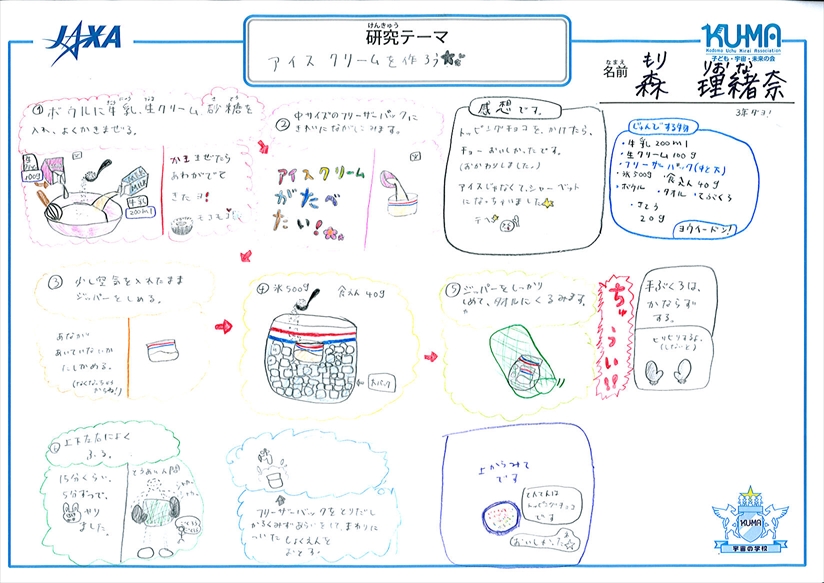 JAXA
けんきゅう
研究テーマ
アイス クリームを作ろう
KU-MA
Kodomo Uchu Mirai Association
子ども・宇宙・未来の会
なまえ
名前
もり りおな
森 理緒奈
3年
① ボウルに牛乳、生クリーム 砂糖を
入れ、よくかきまぜる。
100g
MILK
牛乳
200ml
かきまぜたら
あわがでて
きたヨ!
モコモコ
② 中サイズのフリーザーパックに
ながしこみます。
アイスクリーム
がたべ
たい!
感想です。
トッピングチョコを、かけたら、
チョーおいしかったです。
(おかわりしました。)
アイスじゃなくて、シャーベット
になっちゃいました
テヘ
じゅんびする物
・牛乳 200ml
・生クリーム 100g
・フリーザーパック(中と大)
・氷500g 食えん 40g
・ボウル ・タオル ・てぶくろ
・さとう
20g
ヨウイードン!
③ 少し空気を入れたまま
ジッパーをしめる。
あながり
あいていないか
たしかめる。
④ 氷500g 食えん 40g
大パック
⑤ ジッパーをしっかり
しめて、タオルにくるみます。
ちゅうい!!
手ぶくろは、
かならず
する。
ヒリヒリするよ。
(しないと)
⑥ 上下左右によく
ふる。
15分くらい。
5分ずつで、
やり
ました。
とうめい人間
フリーザーパックをとりだし
かるくみずあらいをして、まわりに
ついたしょくえんを
おとす。
上からみて
です
てんてんは
トッピングチョコ
です
(おいしかった
KU-MA
宇宙の学校